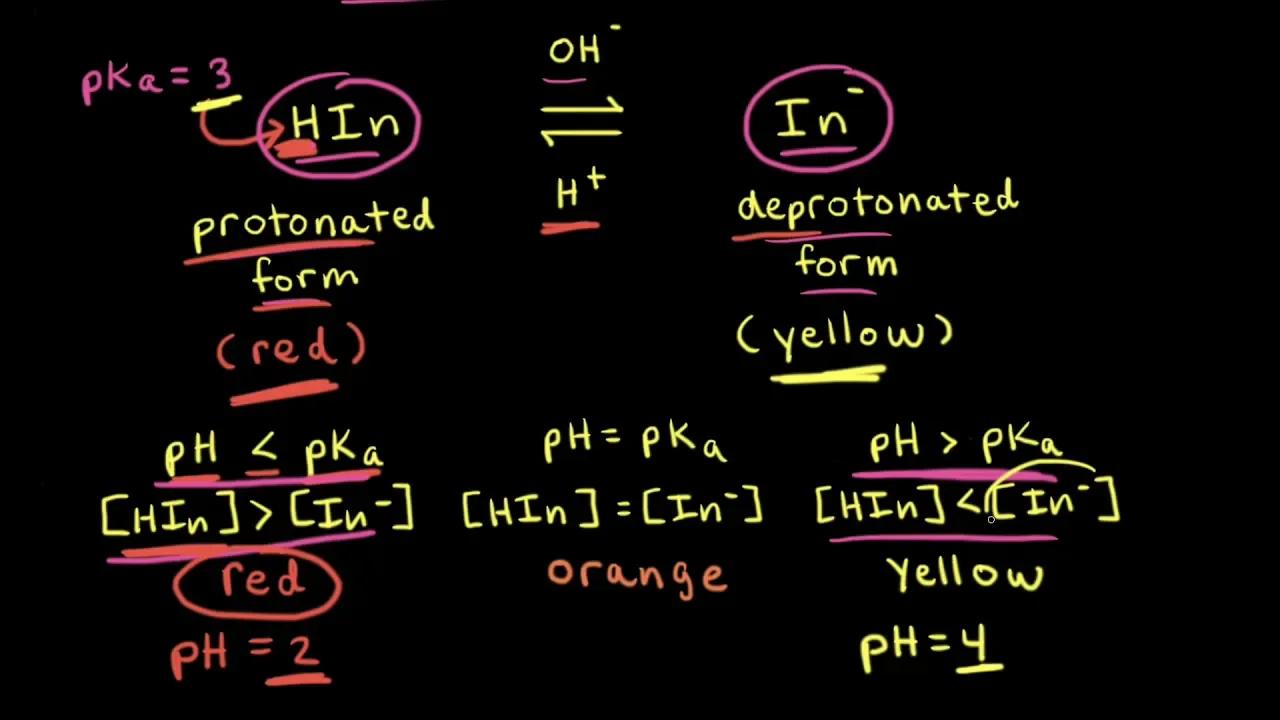 pKa = 3
HIn
OH⁻
⇌
H⁺
In⁻
protonated
form
(red)
deprotonated
form
(yellow)
pH < pKa
[HIn] > [In⁻]
red
pH = 2
pH = pKa
[HIn] = [In⁻]
orange
pH > pKa
[HIn] < [In⁻]
yellow
pH = 4